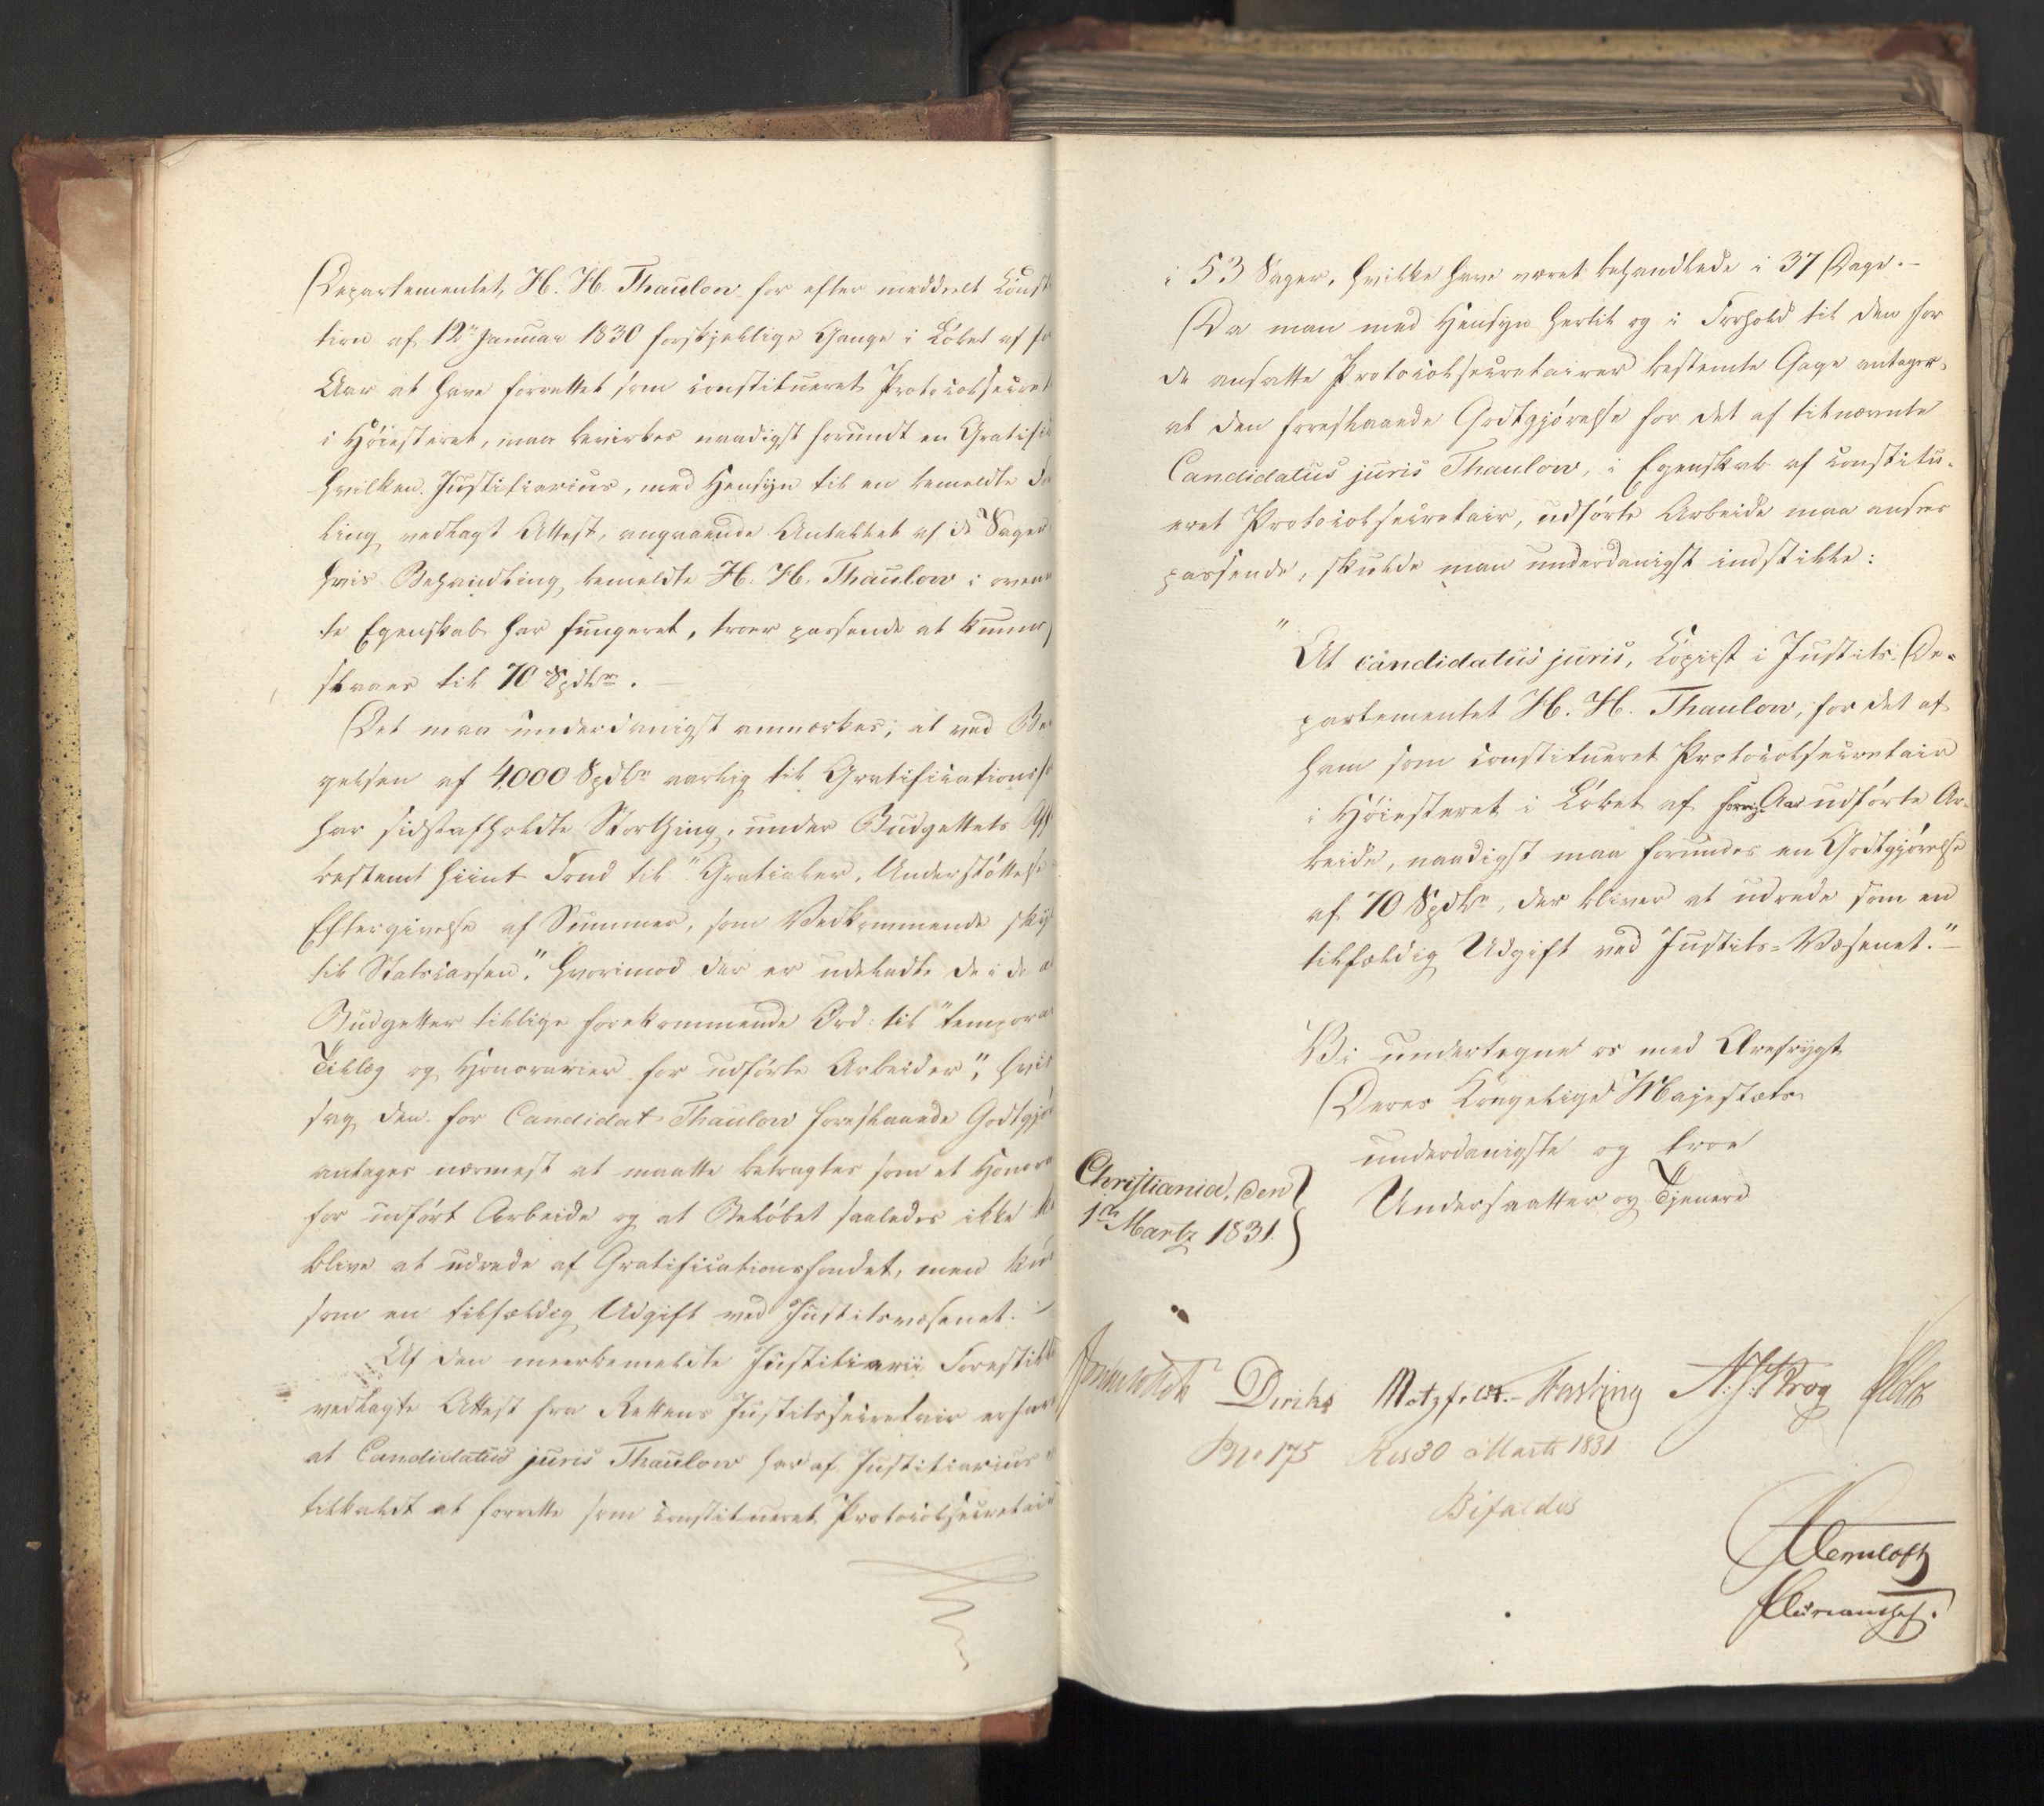 Departementet, H. H. Thaulow for efter meddeelt Const
tion af 12te Januar 1830 forskjellige Gange i Løbet af fo
Aar at have forrettet som constitueret Protocolsecret
i Høiesteret, maa bevirkes naadigst forundt en Gratifi
hvilken Justitiarius, med Hensyn til en bemeldte
ling vedlagt Attest, angaaende Antallet af de Sager
hvis Behandling bemeldte H. H. Thaulow i oven
te Egenskab har fungeret, troer passende at kunne
slaaes til 70 Spdlr. —
Det maa underdanigst anmærkes, at ved Be
gelsen af 4000 Spdlr aarlig til Gratificationsfo
har sidstafholdte Storthing, under Budgettets
bestemt hiint Fond til "Gratialer, Understøttelse
Eftergivelse af Summer, som Vedkommende sky
til Statscassen", hvorimod der er udeladte de i de
Budgetter tillige forekommende Ord: til "temporai
Tillæg og Honorarier for udførte Arbeider", hvi
sag den for Candidat Thaulow foreslaaede Godtgjø
antages nærmest at maatte betragtes som et Honora
for udført Arbeide og at Beløbet saaledes ikke
blive at udrede af Gratificationsfondet, men
som en tilfældig Udgift ved Justitsvæsenet. —
Af den meerbemeldte Justitiarii Forestill
vedlagte Attest fra Rettens Justitssecretair erfar
at Candidatus juris Thaulow har af Justitiarius
tilkaldt at forrette som constitueret Protocolsecretair
i 53 Sager, hvilke have været behandlede i 37 Dage. —
Da man med Hensyn hertil og i Forhold til den for
de ansatte Protocolsecretairer bestemte Gage antager,
at den foreslaaede Godtgjørelse for det af titnævnte
Candidatus juris Thaulow, i Egenskab af constitu-
eret Protocolsecretair, udførte Arbeide maa ansees
passende, skulde man underdanigst indstille:
"At candidatus juris, Copiist i Justits-De-
partementet H. H. Thaulow, for det af
ham som constitueret Protocolsecretair
i Høiesteret i Løbet af forrige Aar udførte Ar-
beide, naadigst maa forundes en Godtgjørelse
af 70 Spdlr, der bliver at udrede som en
tilfældig Udgift ved Justits-Væsenet." —
Vi undertegne os med Ærefrygt
Deres Kongelige Majestæts
underdanigste og troe
Undersaatter og Tjenere
Christiania, den
1ste Martz 1831.
Diriks Motzfeldt Fasting N. J. Krog Holst
No 175 Res 30 Marts 1831
Bifaldes